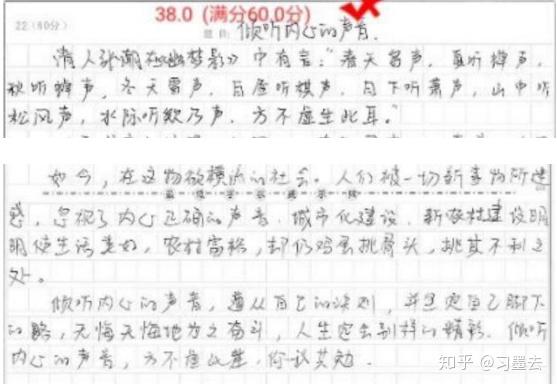 38.0 (满分60.0分)
22(60分)
题目:倾听内心的声音。
清人张潮在《幽梦影》中有言:"春天鸟声,夏听蝉声,
秋听声,冬天雪声,白昼听棋声,月下听萧声,山中听
松风声,水际听欸乃声,方不虚生此耳。"
如今,在这物欲横流的社会。人们被一切新事物所迷
惑,忽视了内心正确的声音。城市化建设、新农村建设明
明使生活美好,农村富裕,却仍鸡蛋挑骨头,挑其不利之
处。
倾听内心的声音,遵从自己的法则,并坚定自己脚下
的路,无悔无悔地为之奋斗,人生定会别样的精彩。倾听
内心的声音,方不虚此生,你我共勉。
知乎 @习墨去